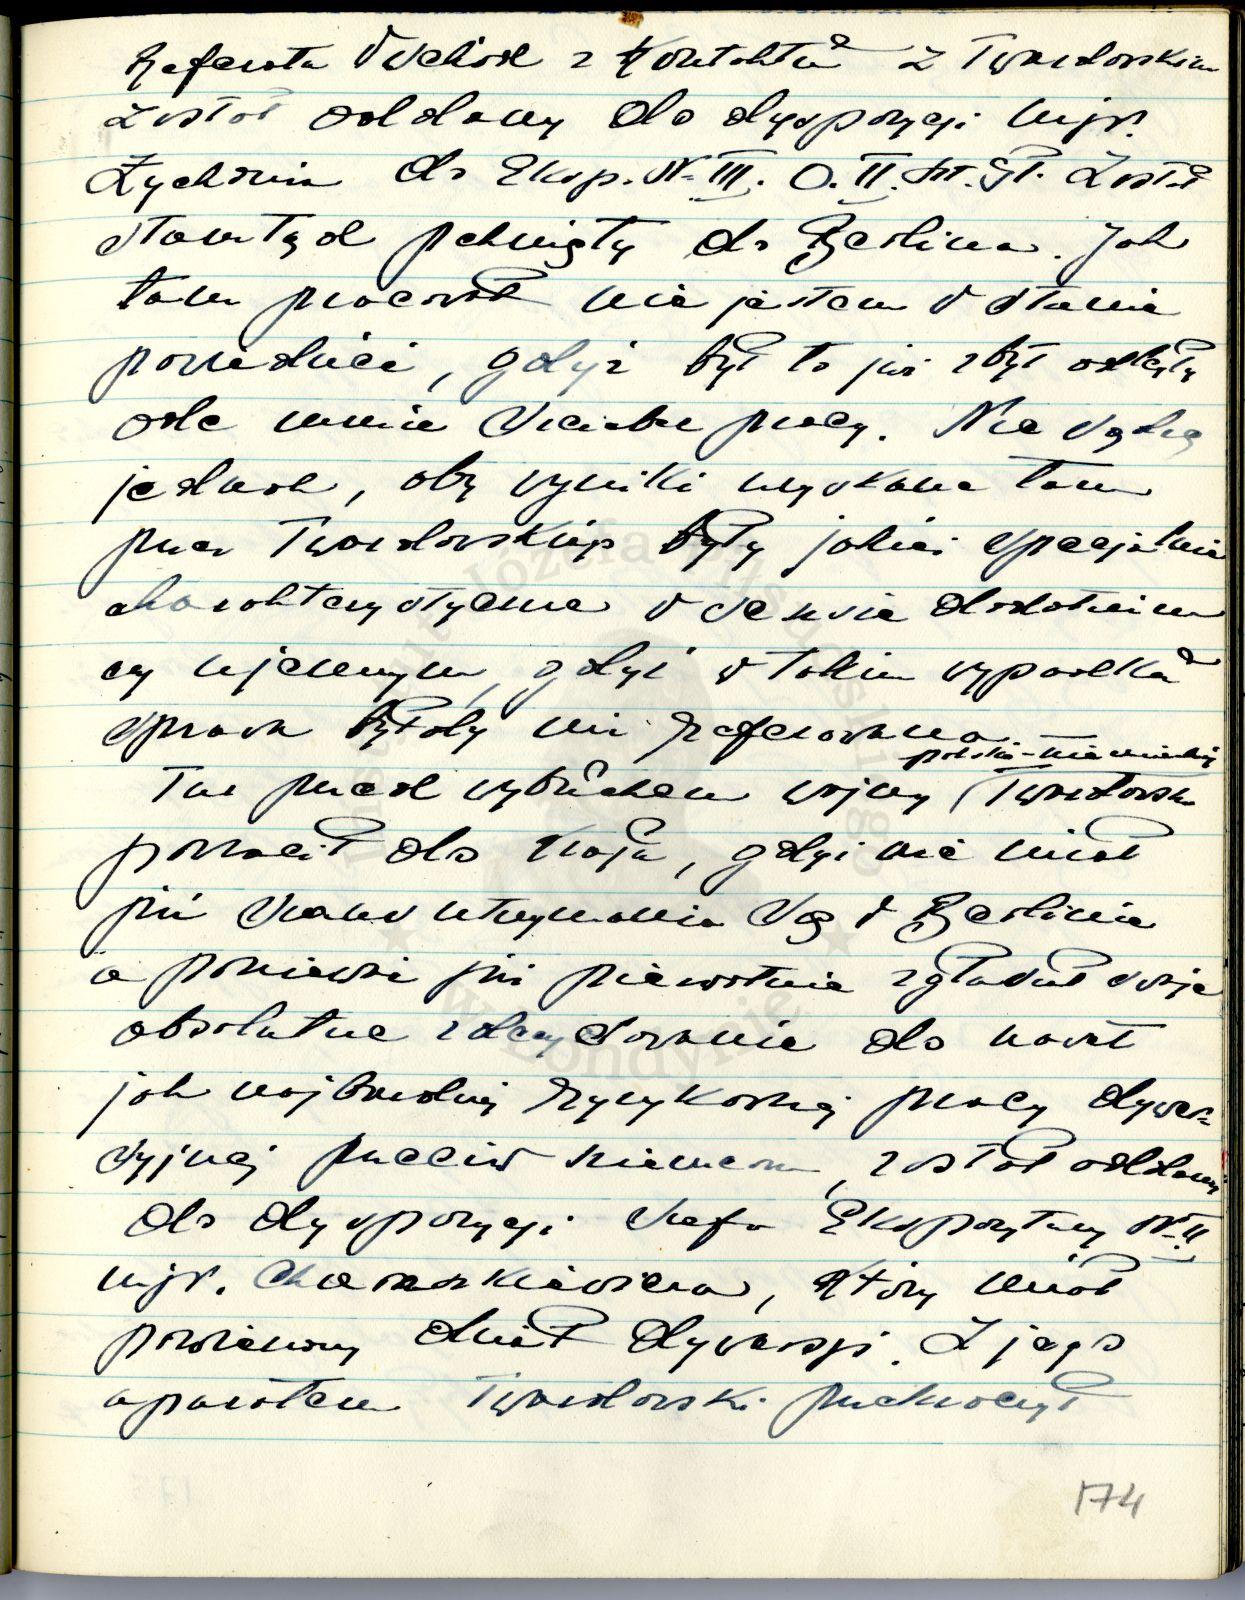 Referatu Wschód z kontaktu z Twardowskim
został oddany do dyspozycji mjr.
Żychonia do Eksp. Nr. III. O. II. Szt. Gł. Został
stamtąd pchnięty do Berlina. Jak
tam pracował nie jestem w stanie
powiedzieć, gdyż był to już zbyt odległy
ode mnie szczebel pracy. Nie sądzę
jednak, aby wyniki uzyskane tam
przez Twardowskiego były jakieś specjalnie
charakterystyczne w sensie dodatnim
czy ujemnym, gdyż w takim wypadku
sprawa byłaby mi referowana. —
Tuż przed wybuchem wojny polsko-niemieckiej Twardowski
powrócił do kraju, gdyż nie miał
już szans utrzymania się w Berlinie
a ponieważ już pierwotnie zgłaszał swoje
absolutne zdecydowanie do nawet
jak najbardziej ryzykownej pracy dywer-
syjnej przeciw niemcom, został oddany
do dyspozycji szefa Ekspozytury Nr. II
mjr. Charaszkiewicza, który miał
powierzony dział dywersji. Z jego
aparatem Twardowski przekroczył
174
Instytut Józefa Piłsudskiego
w Londynie